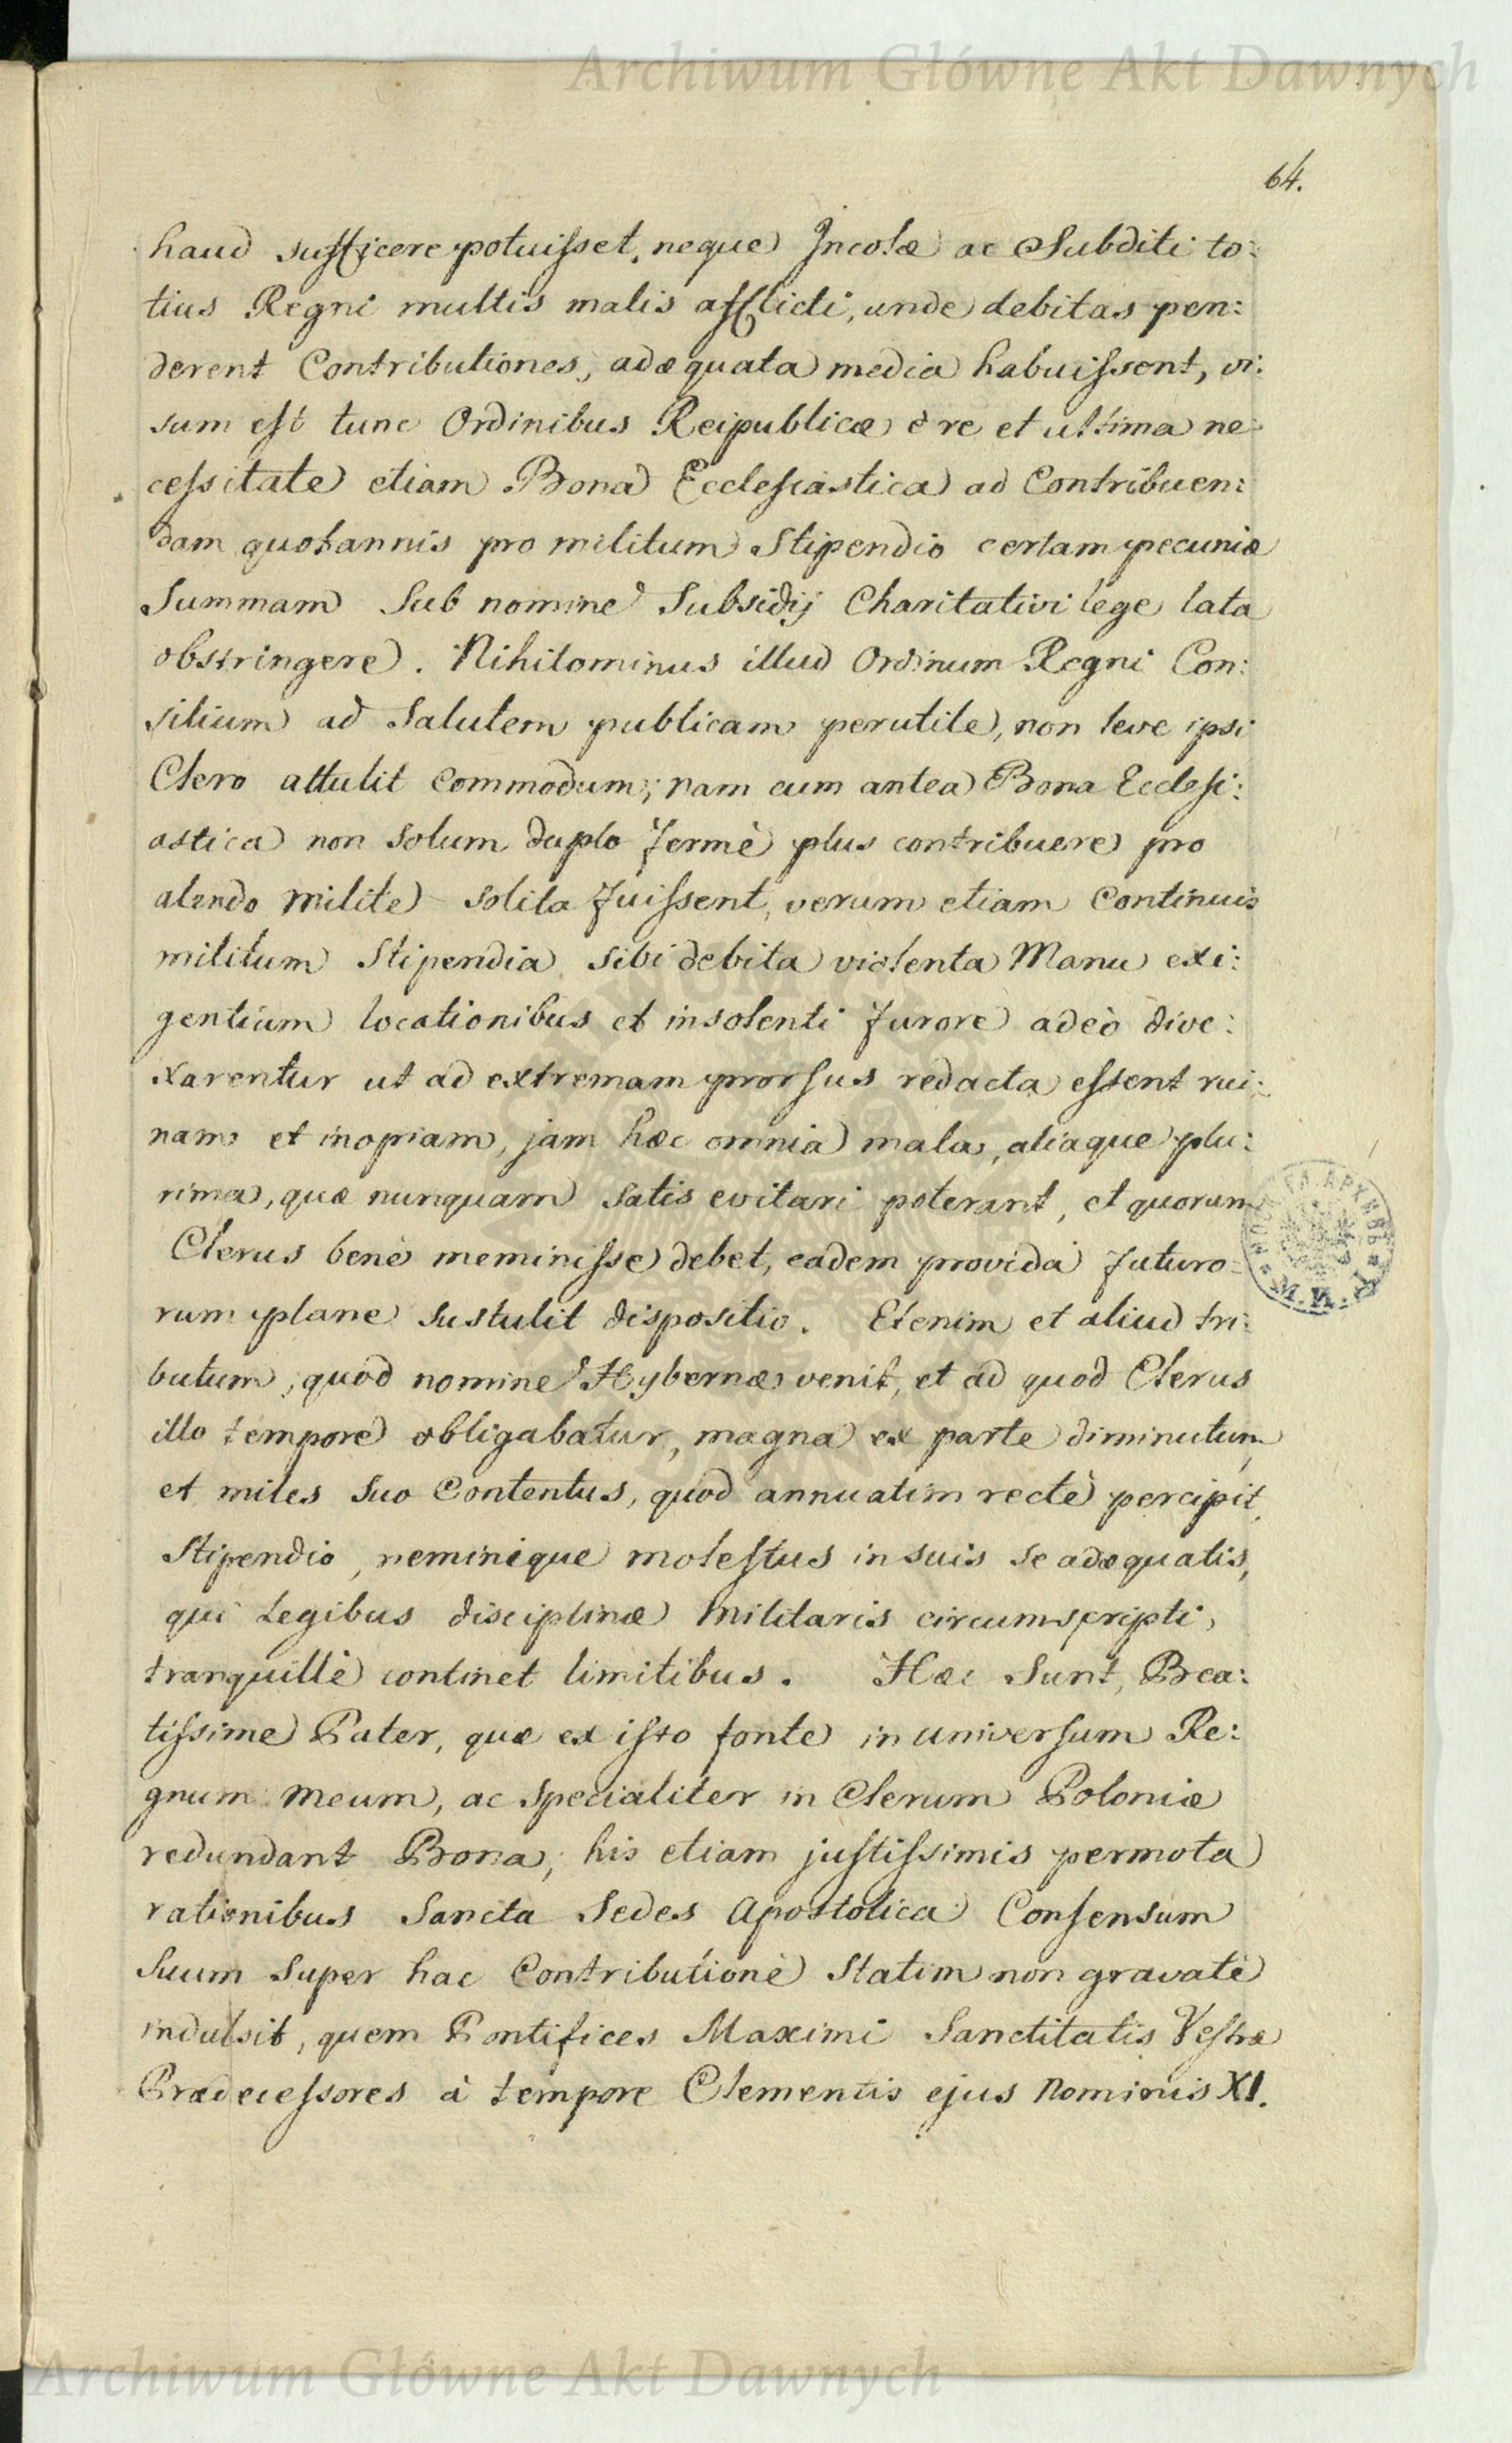 Archiwum Główne Akt Dawnych
64.
haud sufficere potuisset, neque Incolæ ac Subditi to:
tius Regni multis malis afflicti, unde debitas pen:
derent Contributiones, adæquata media habuissent, vi:
sum est tunc Ordinibus Reipublicæ è re et ultima ne:
cessitate etiam Bona Ecclesiastica ad Contribuen:
dam quotannis pro militum Stipendio certam pecuniæ
Summam Sub nomine Subsidij Charitativi lege lata
obstringere. Nihilominus illud Ordinum Regni Con:
silium ad Salutem publicam perutile, non leve ipsi
Clero attulit Commodum; nam cum antea Bona Ecclesi:
astica non Solum duplo fermè plus contribuere pro
alendo Milite solita fuissent, verum etiam Continuis
militum Stipendia sibi debita violenta Manu exi:
gentium locationibus et insolenti furore adeò dive:
xarentur ut ad extremam prorsus redacta essent rui:
nam et inopiam, jam hæc omnia mala, aliaque plu:
rima, quæ nunquam Satis evitari poterant, et quorum
Clerus benè meminisse debet, eadem provida futuro:
rum plane Sustulit dispositio. Etenim et aliud tri:
butum, quod nomine Hybernæ venit, et ad quod Clerus
illo tempore obligabatur, magna ex parte diminutum,
et miles Suo Contentus, quod annuatim rectè percipit,
Stipendio, neminique molestus in suis Se adæquatis,
qui Legibus disciplinæ Militaris circumscripti,
tranquillè continet limitibus. Hæc Sunt, Bea:
tissime Pater, quæ ex isto fonte in universum Re:
gnum Meum, ac Specialiter in Clerum Poloniæ
redundant Bona, his etiam justissimis permota
rationibus Sancta Sedes Apostolica Consensum
Suum Super hac Contributione Statim non gravatè
indulsit, quem Pontifices Maximi Sanctitatis Vestræ
Prædecessores à tempore Clementis ejus Nominis XI.
Archiwum Główne Akt Dawnych